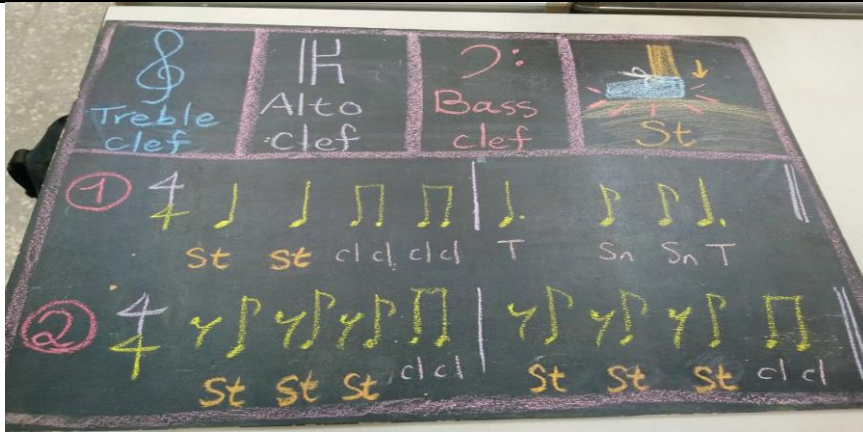 Treble clef
Alto clef
Bass clef
St
① 4/4
St St cl cl cl cl T Sn Sn T
② 4/4
St St St cl cl St St St cl cl